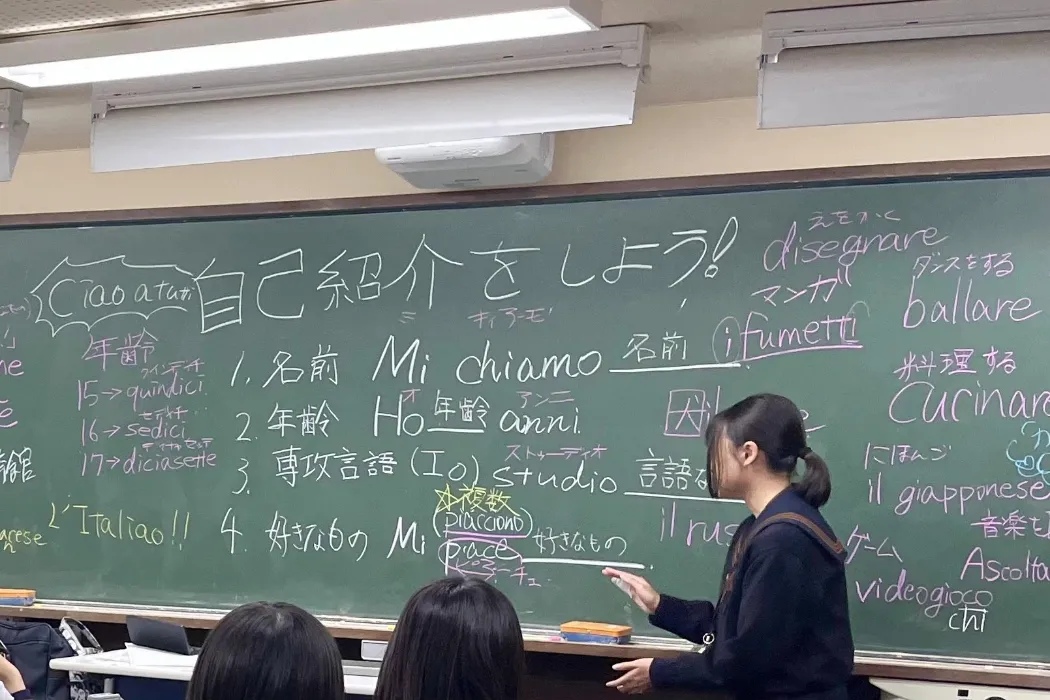 Ciao a tutti
自己紹介をしよう!
年齢
クインディチ
15→quindici
セディチ
16→sedici
17→diciasette
L'Italiao!!
キィアーモ
1. 名前 Mi chiamo 名前
アンニ
2. 年齢 Ho 年齢 anni.
ストゥーディオ
3. 専攻言語 (Io) studio 言語
☆複数
(piacciono)
4. 好きなもの Mi piace 好きなもの
ピアーチェ
えをかく
disegnare
マンガ
i fumetti
ダンスをする
ballare
料理する
Cucinare
にほんご
il giapponese
il rus
音楽を
Ascolta
ゲーム
videogioco
chi